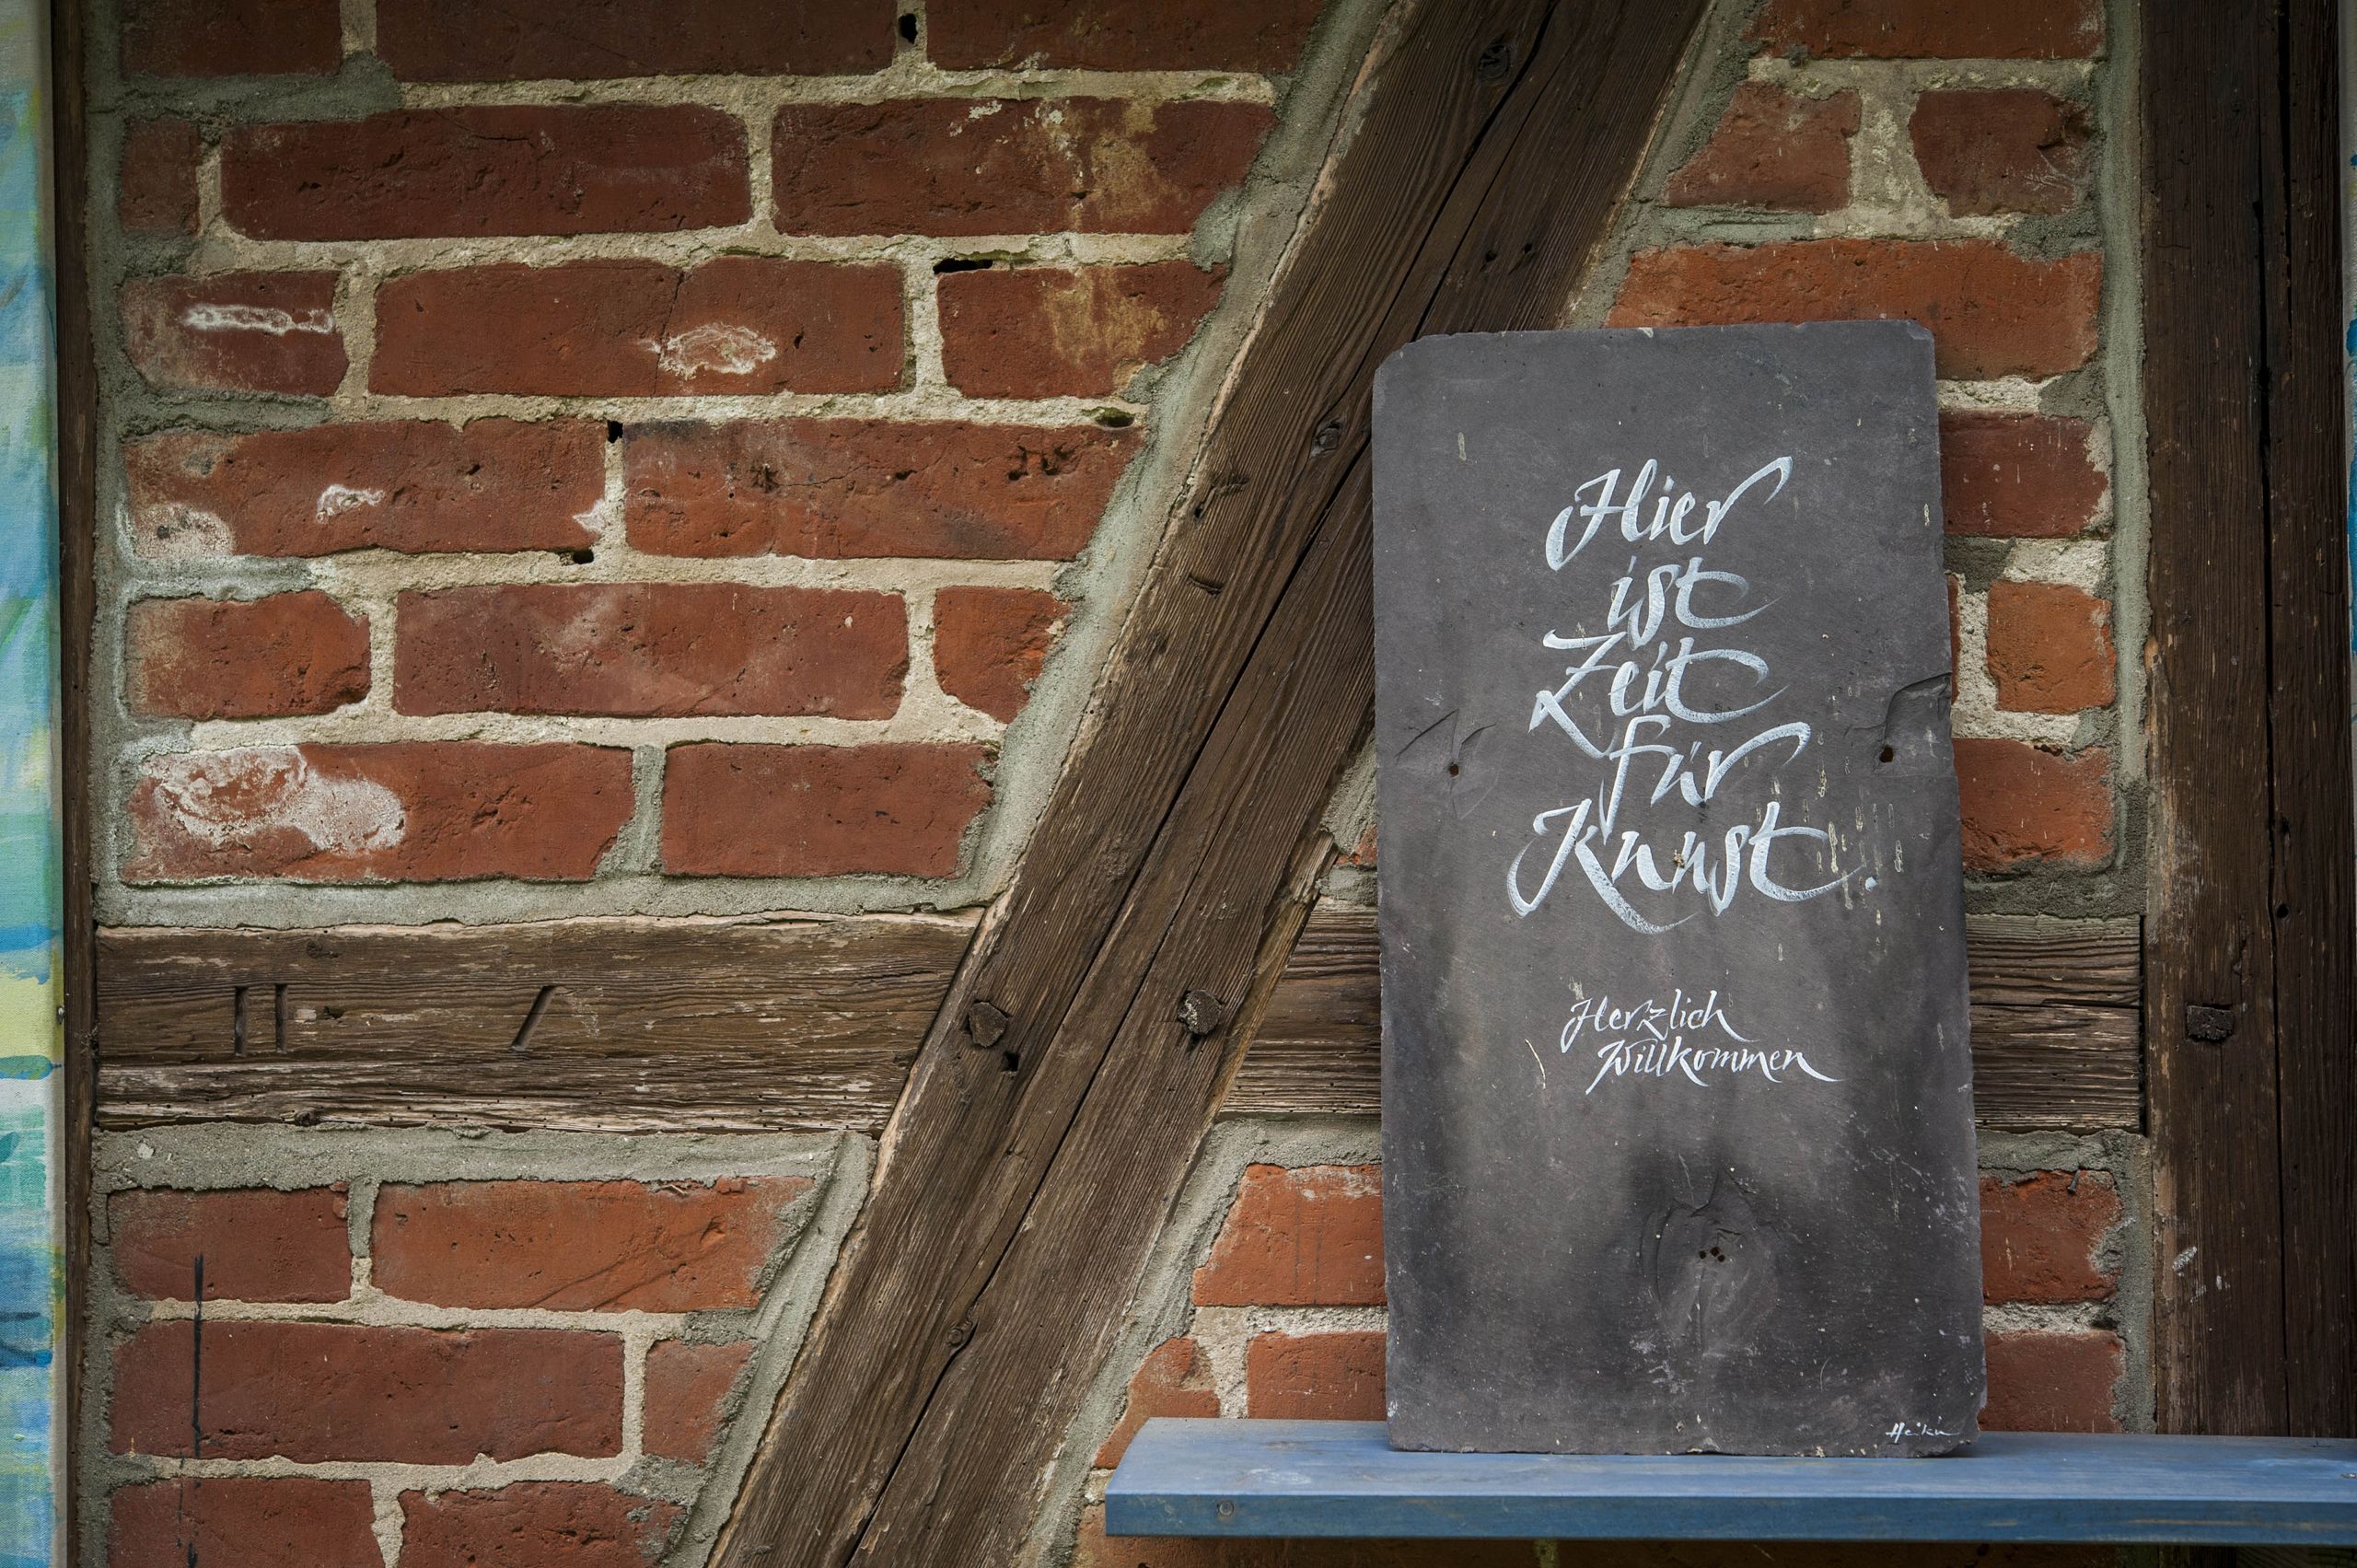 Hier
ist
Zeit
für
Kunst.
Herzlich
Willkommen